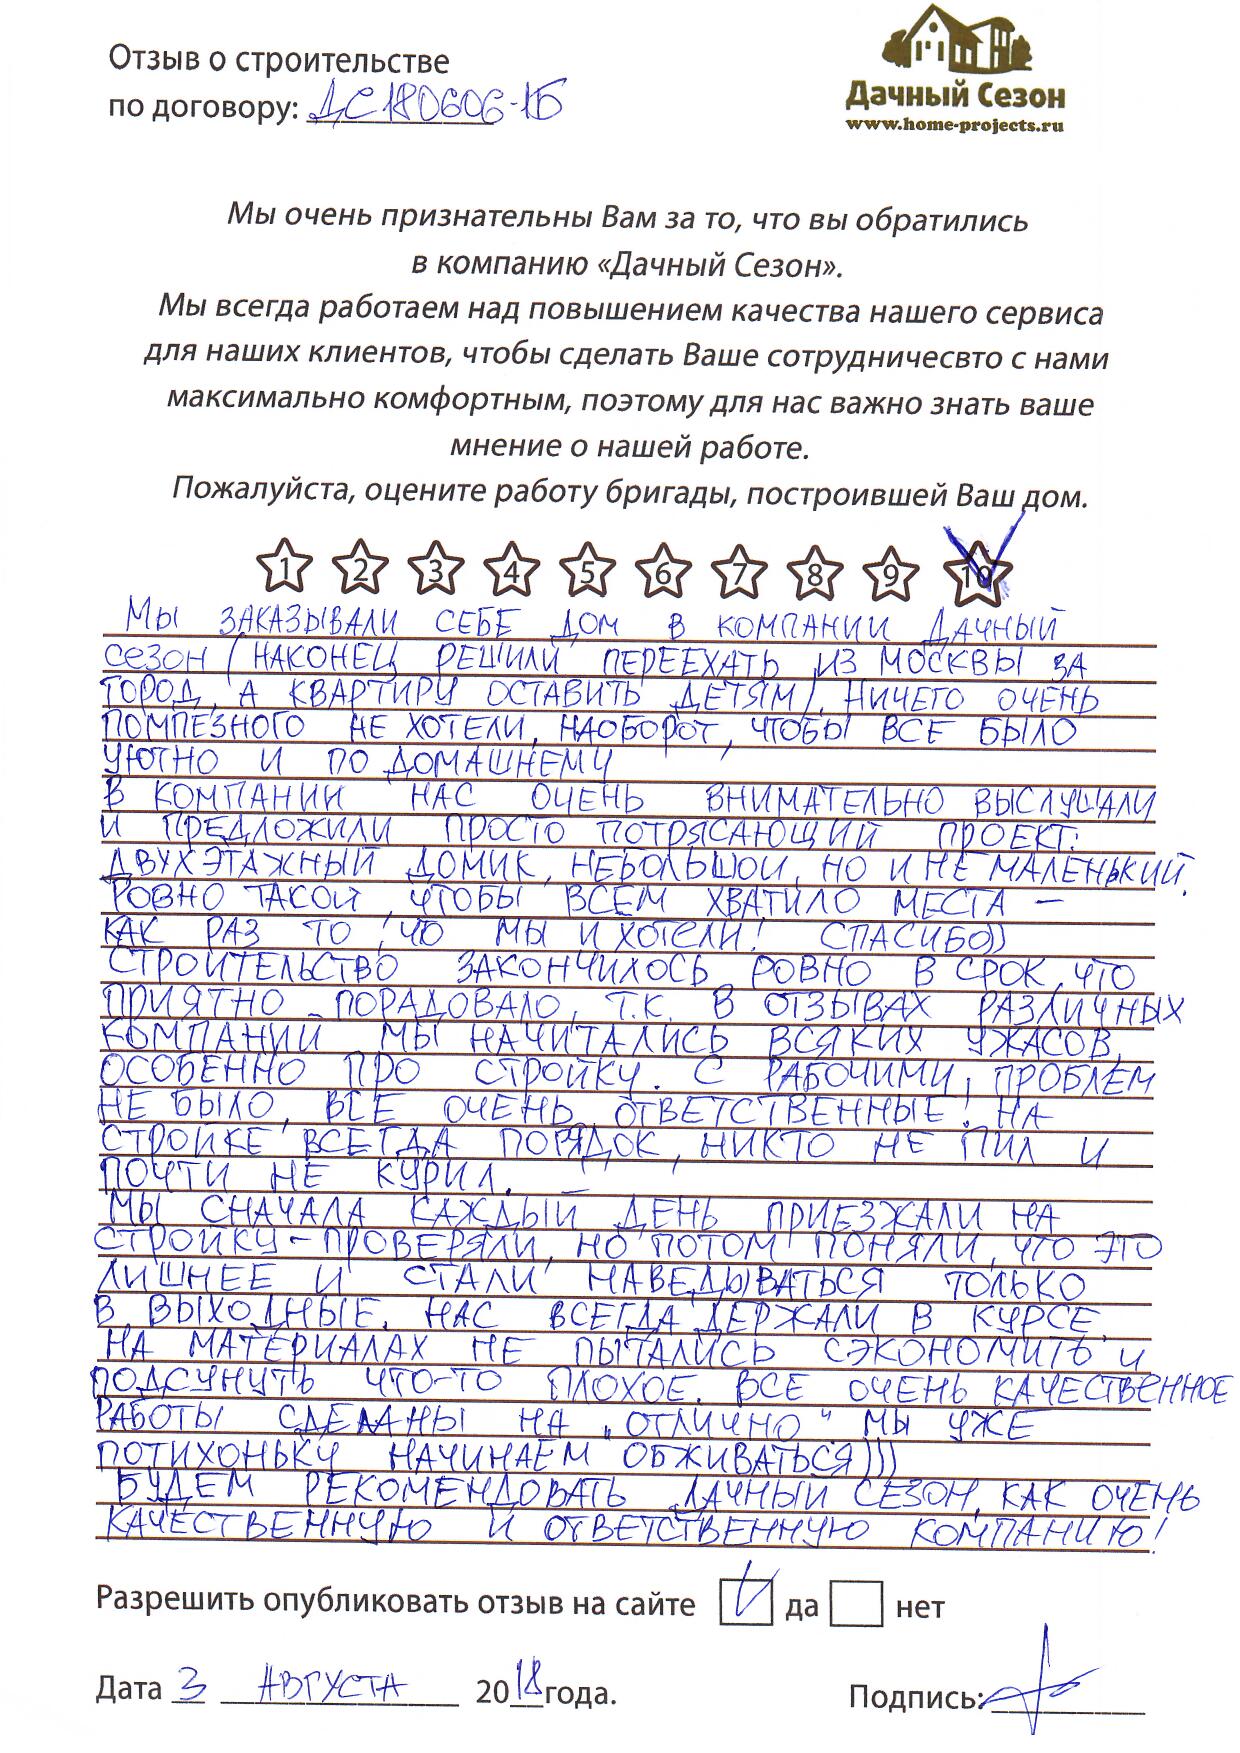 Отзыв о строительстве
по договору: ДС180606-1Б
Дачный Сезон
www.home-projects.ru
Мы очень признательны Вам за то, что вы обратились
в компанию «Дачный Сезон».
Мы всегда работаем над повышением качества нашего сервиса
для наших клиентов, чтобы сделать Ваше сотрудничесвто с нами
максимально комфортным, поэтому для нас важно знать ваше
мнение о нашей работе.
Пожалуйста, оцените работу бригады, построившей Ваш дом.
1 2 3 4 5 6 7 8 9 10
МЫ ЗАКАЗЫВАЛИ СЕБЕ ДОМ В КОМПАНИИ ДАЧНЫЙ
СЕЗОН (НАКОНЕЦ РЕШИЛИ ПЕРЕЕХАТЬ ИЗ МОСКВЫ ЗА
ГОРОД, А КВАРТИРУ ОСТАВИТЬ ДЕТЯМ). НИЧЕГО ОЧЕНЬ
ПОМПЕЗНОГО НЕ ХОТЕЛИ, НАОБОРОТ, ЧТОБЫ ВСЕ БЫЛО
УЮТНО И ПО ДОМАШНЕМУ
В КОМПАНИИ НАС ОЧЕНЬ ВНИМАТЕЛЬНО ВЫСЛУШАЛИ
И ПРЕДЛОЖИЛИ ПРОСТО ПОТРЯСАЮЩИЙ ПРОЕКТ:
ДВУХЭТАЖНЫЙ ДОМИК, НЕБОЛЬШОЙ, НО И НЕ МАЛЕНЬКИЙ.
РОВНО ТАКОЙ, ЧТОБЫ ВСЕМ ХВАТИЛО МЕСТА –
КАК РАЗ ТО, ЧО МЫ И ХОТЕЛИ! СПАСИБО))
СТРОИТЕЛЬСТВО ЗАКОНЧИЛОСЬ РОВНО В СРОК, ЧТО
ПРИЯТНО ПОРАДОВАЛО, Т.К. В ОТЗЫВАХ РАЗЛИЧНЫХ
КОМПАНИЙ МЫ НАЧИТАЛИСЬ ВСЯКИХ УЖАСОВ,
ОСОБЕННО ПРО СТРОЙКУ. С РАБОЧИМИ, ПРОБЛЕМ
НЕ БЫЛО, ВСЕ ОЧЕНЬ ОТВЕТСТВЕННЫЕ. НА
СТРОЙКЕ ВСЕГДА ПОРЯДОК, НИКТО НЕ ПИЛ И
ПОЧТИ НЕ КУРИЛ.
МЫ СНАЧАЛА КАЖДЫЙ ДЕНЬ ПРИЕЗЖАЛИ НА
СТРОЙКУ – ПРОВЕРЯЛИ, НО ПОТОМ ПОНЯЛИ, ЧТО ЭТО
ЛИШНЕЕ И СТАЛИ НАВЕДЫВАТЬСЯ ТОЛЬКО
В ВЫХОДНЫЕ. НАС ВСЕГДА ДЕРЖАЛИ В КУРСЕ.
НА МАТЕРИАЛАХ НЕ ПЫТАЛИСЬ СЭКОНОМИТЬ И
ПОДСУНУТЬ ЧТО-ТО ПЛОХОЕ. ВСЕ ОЧЕНЬ КАЧЕСТВЕННОЕ
РАБОТЫ СДЕЛАНЫ НА „ОТЛИЧНО". МЫ УЖЕ
ПОТИХОНЬКУ НАЧИНАЕМ ОБЖИВАТЬСЯ)))
БУДЕМ РЕКОМЕНДОВАТЬ ДАЧНЫЙ СЕЗОН, КАК ОЧЕНЬ
КАЧЕСТВЕННУЮ И ОТВЕТСТВЕННУЮ КОМПАНИЮ!
Разрешить опубликовать отзыв на сайте да нет
Дата 3 АВГУСТА 2018 года. Подпись: